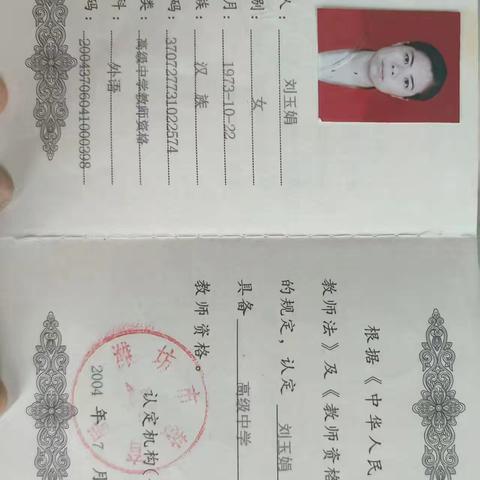 人：刘玉娟
别：女
月：1973-10-22
族：汉族
码：370727731022574
类：高级中学教师资格
科：外语
码：20043706041000398
根据《中华人民
教师法》及《教师资格
的规定，认定 刘玉娟
具备 高级中学
教师资格。
认定机构(
2004 年 7 月